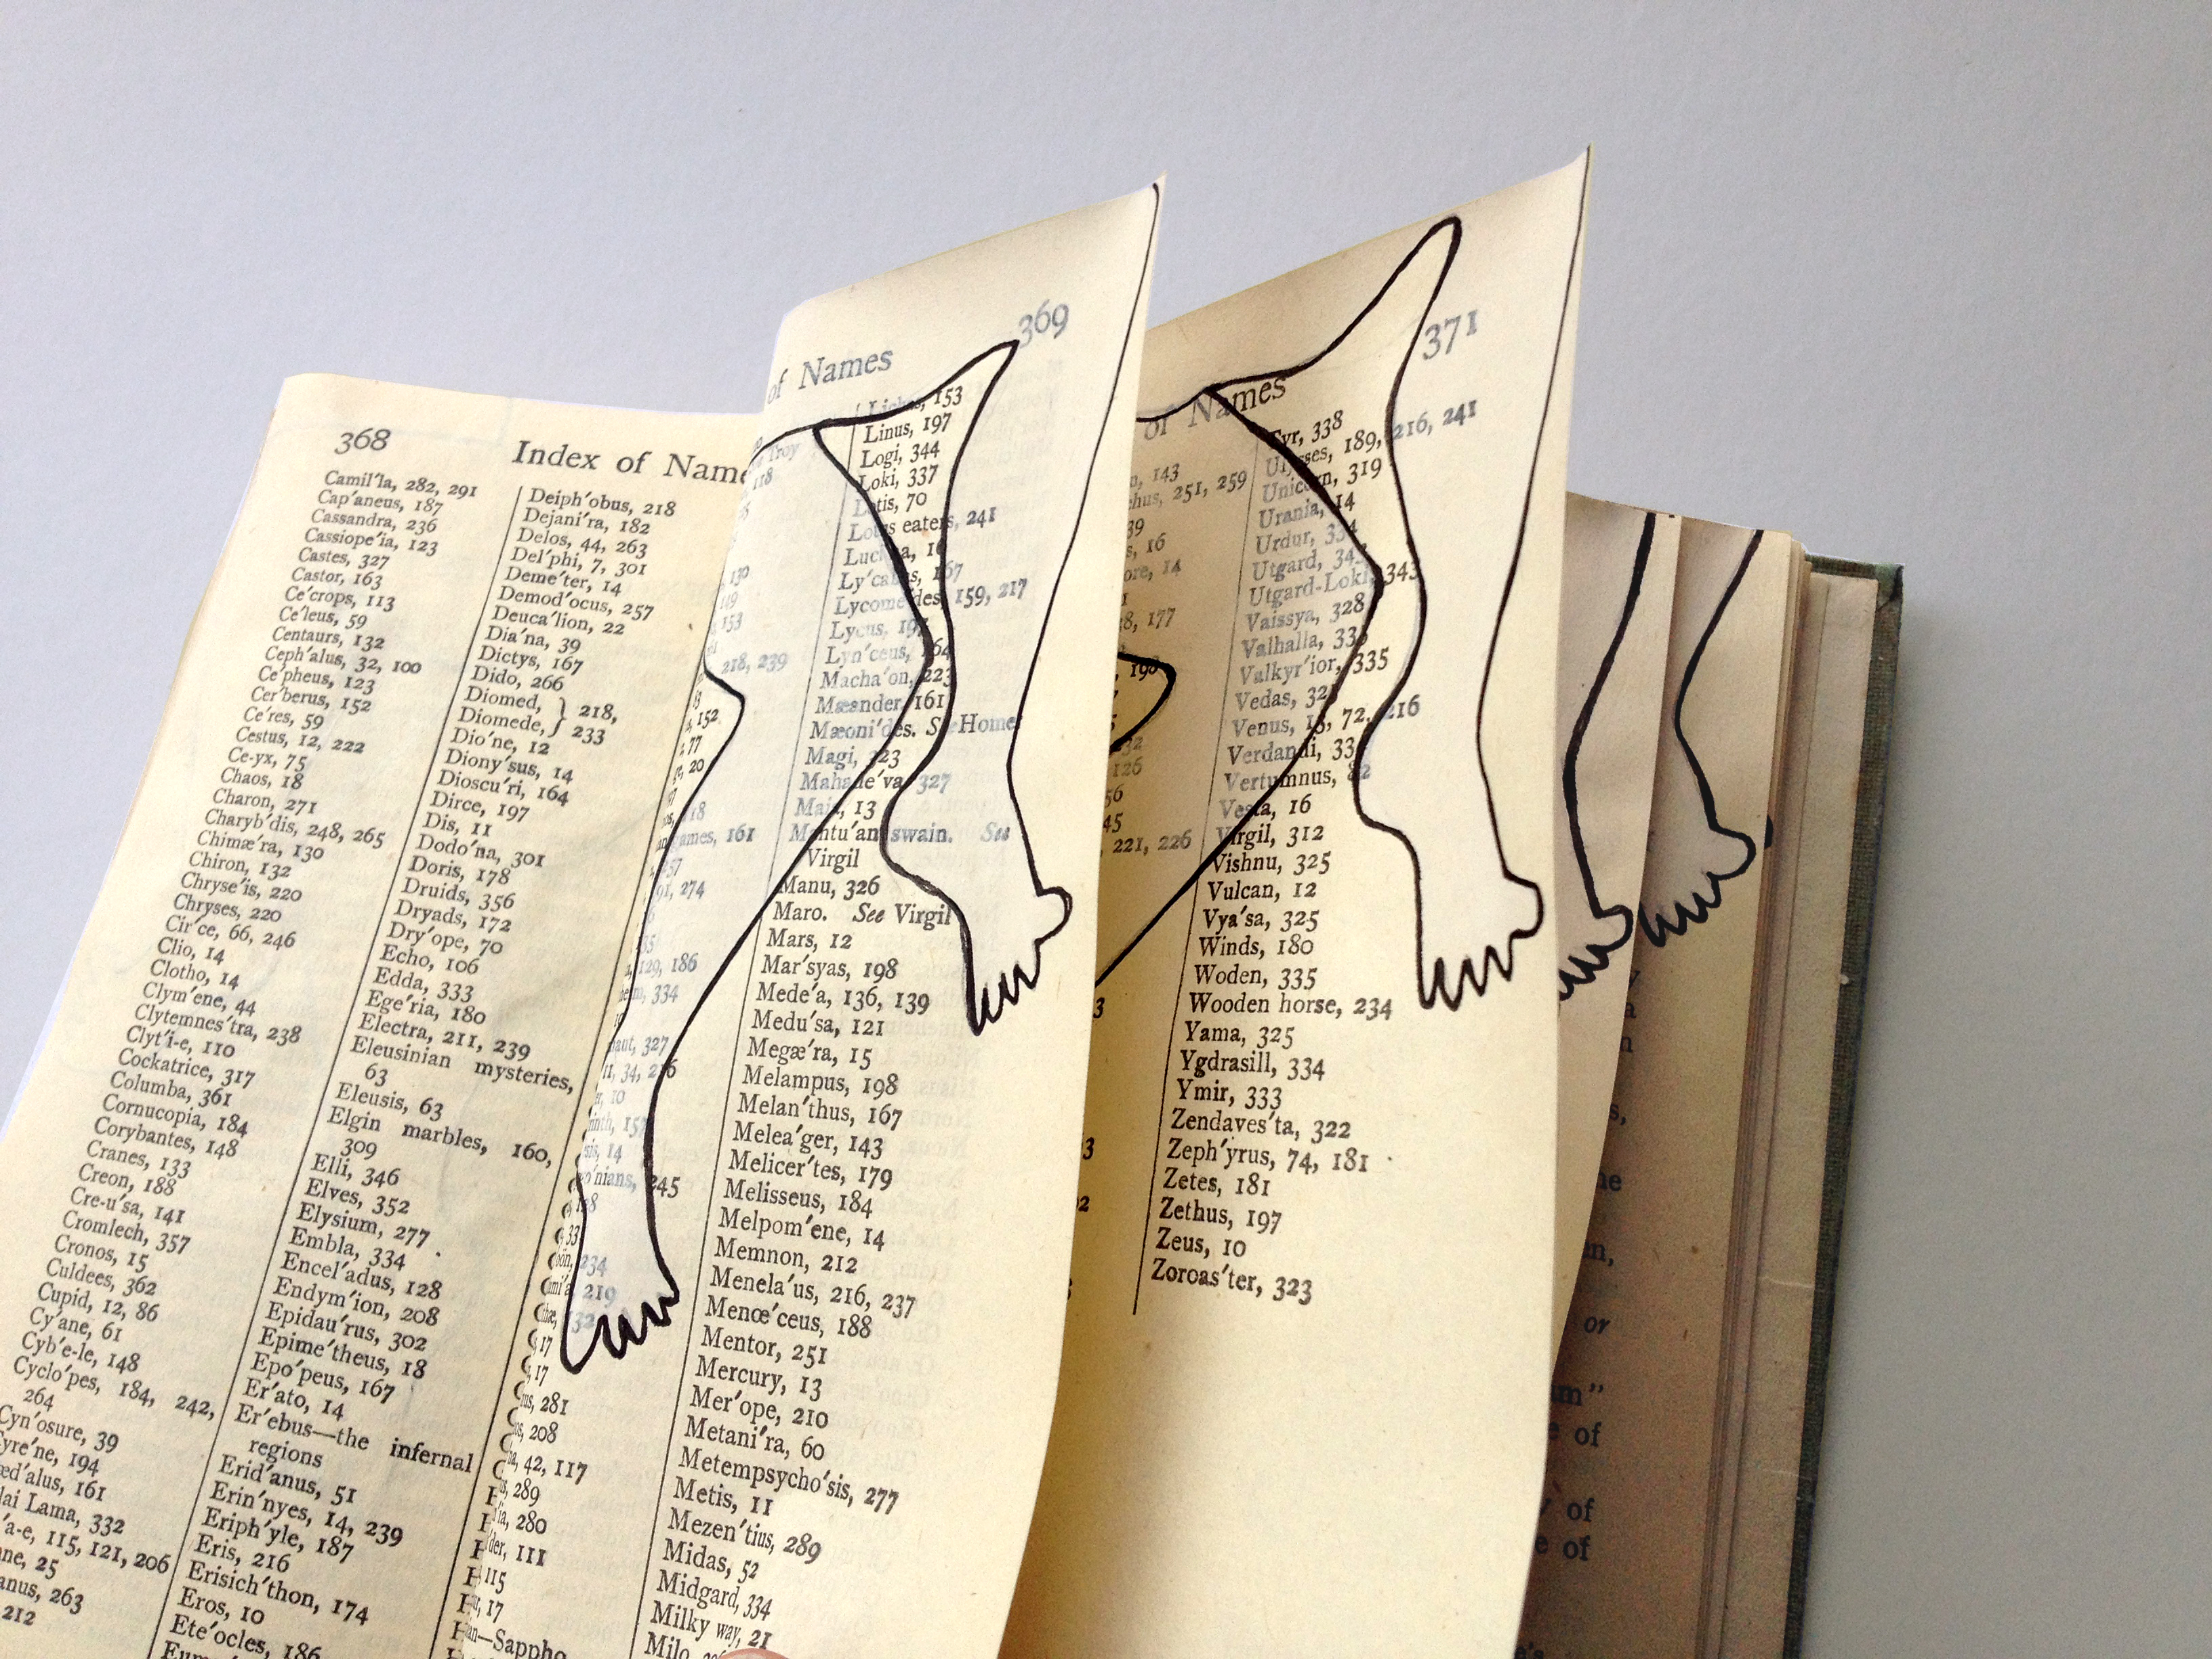 368
Index of
Camil'la, 282, 291
Cap'aneus, 187
Cassandra, 236
Cassiope'ia, 123
Castes, 327
Castor, 163
Ce'crops, 113
Ce'leus, 59
Centaurs, 132
Ceph'alus, 32, 100
Ce'pheus, 123
Cer'berus, 152
Ce'res, 59
Cestus, 12, 222
Ce-yx, 75
Chaos, 18
Charon, 271
Charyb'dis, 248, 265
Chimæ'ra, 130
Chiron, 132
Chryse'is, 220
Chryses, 220
Cir'ce, 66, 246
Clio, 14
Clotho, 14
Clym'ene, 44
Clytemnes'tra, 238
Clyt'i-e, 110
Cockatrice, 317
Columba, 361
Cornucopia, 184
Corybantes, 148
Cranes, 133
Creon, 188
Cre-u'sa, 141
Cromlech, 357
Cronos, 15
Culdees, 362
Cupid, 12, 86
Cy'ane, 61
Cyb'e-le, 148
Cyclo'pes, 184, 242,
264
Cyn'osure, 39
194
161
Lama, 332
115, 121, 206
25
263
212
Deiph'obus, 218
Dejani'ra, 182
Delos, 44, 263
Del'phi, 7, 301
Deme'ter, 14
Demod'ocus, 257
Deuca'lion, 22
Dia'na, 39
Dictys, 167
Dido, 266
Diomed, } 218,
Diomede, } 233
Dio'ne, 12
Diony'sus, 14
Dioscu'ri, 164
Dirce, 197
Dis, 11
Dodo'na, 301
Doris, 178
Druids, 356
Dryads, 172
Dry'ope, 70
Echo, 106
Edda, 333
Ege'ria, 180
Electra, 211, 239
Eleusinian mysteries,
63
Eleusis, 63
Elgin marbles, 160,
309
Elli, 346
Elves, 352
Elysium, 277
Embla, 334
Encel'adus, 128
Endym'ion, 208
Epidau'rus, 302
Epime'theus, 18
Epo'peus, 167
Er'ato, 14
Er'ebus—the infernal
regions
Erid'anus, 51
Erin'nyes, 14, 239
Eriph'yle, 187
Eris, 216
Erisich'thon, 174
Eros, 10
Ete'ocles, 186
of Names
369
Troy
118
130
149
153
218, 239
152
77
20
18
161
274
129, 186
334
327
34,
10
14
245
234
219
17
17
281
208
42, 117
289
280
111
115
17
Sappho
153
Linus, 197
Logi, 344
Loki, 337
Lotis, 70
Lotus eaters, 241
Ly'cabas, 167
Lycome'des, 159, 217
Lycus, 197
Lyn'ceus, 164
Macha'on, 223
Mæander, 161
Mæoni'des. See Homer
Magi, 323
Mahade'va, 327
Maia, 13
Mantu'an swain. See
Virgil
Manu, 326
Maro. See Virgil
Mars, 12
Mar'syas, 198
Mede'a, 136, 139
Medu'sa, 121
Megæ'ra, 15
Melampus, 198
Melan'thus, 167
Melea'ger, 143
Melicer'tes, 179
Melisseus, 184
Melpom'ene, 14
Memnon, 212
Menela'us, 216, 237
Menœ'ceus, 188
Mentor, 251
Mercury, 13
Mer'ope, 210
Metani'ra, 60
Metempsycho'sis, 277
Metis, 11
Mezen'tius, 289
Midas, 52
Midgard, 334
Milky way, 21
Milo,
of Names
371
143
251, 259
16
14
177
198
126
221, 226
Tyr, 338
Ulysses, 189, 216, 241
Unicorn, 319
Urania, 14
Urdur, 334
Utgard,
Utgard-Loki, 343
Vaissya, 328
Valhalla,
Valkyr'ior, 335
Vedas,
Venus, 13, 72, 216
Verdandi,
Vertumnus, 82
Vesta, 16
Virgil, 312
Vishnu, 325
Vulcan, 12
Vya'sa, 325
Winds, 180
Woden, 335
Wooden horse, 234
Yama, 325
Ygdrasill, 334
Ymir, 333
Zendaves'ta, 322
Zeph'yrus, 74, 181
Zetes, 181
Zethus, 197
Zeus, 10
Zoroas'ter, 323
or
of
of
of